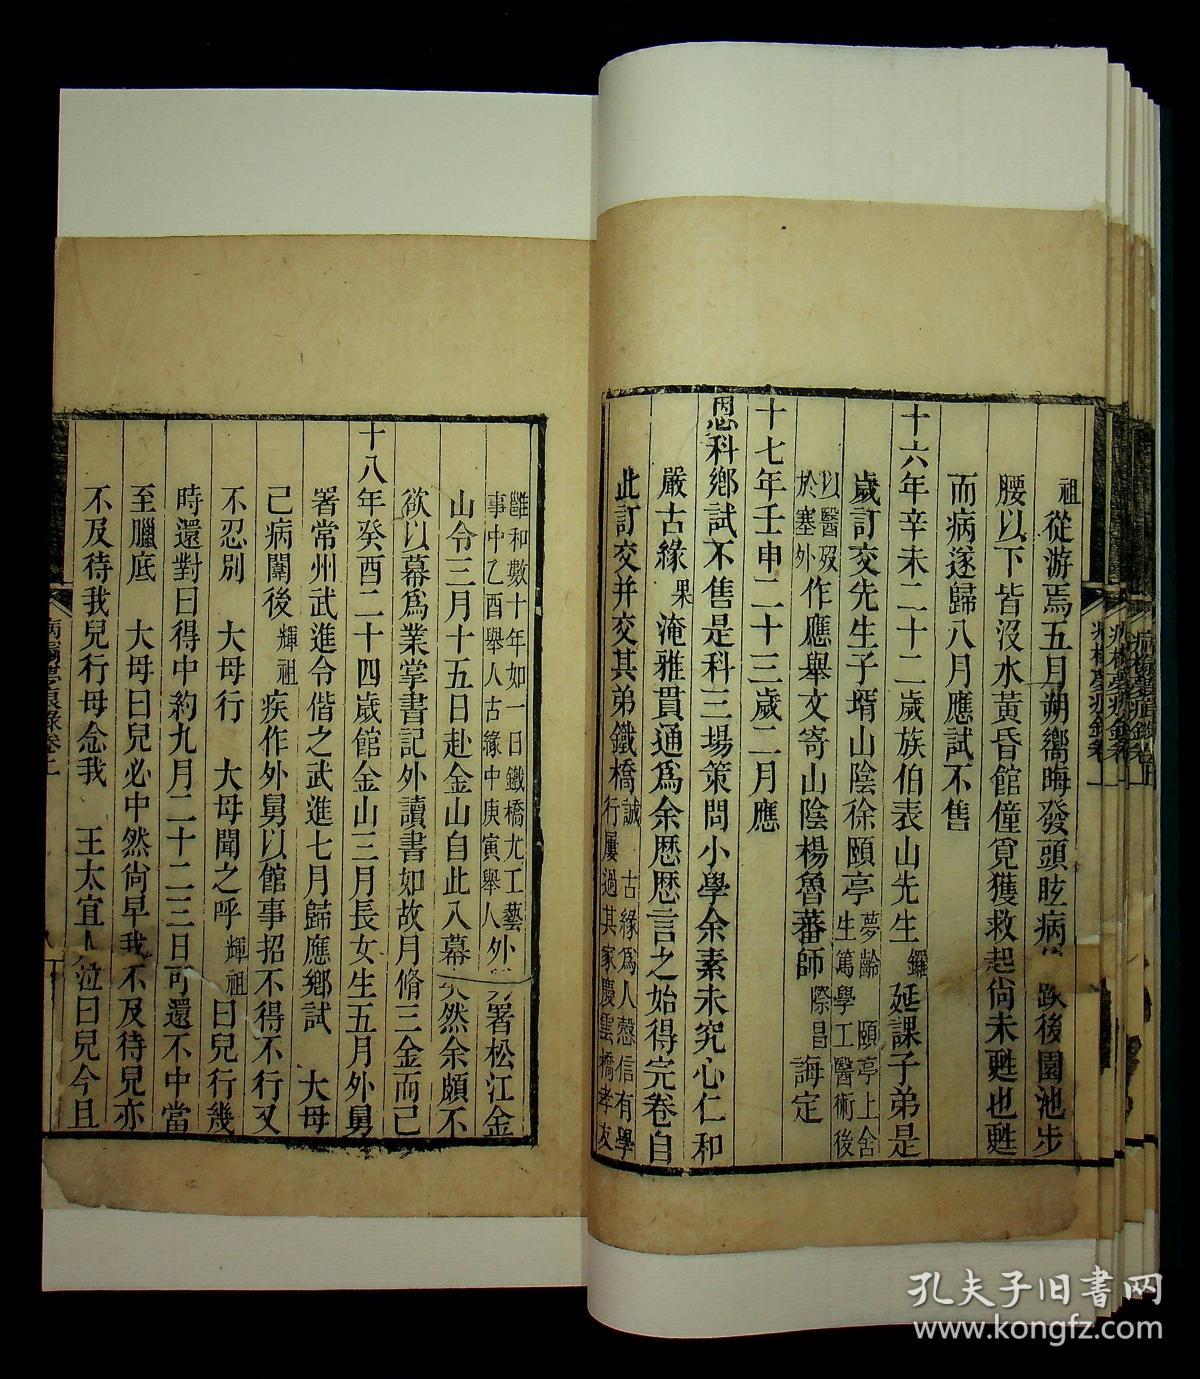 祖從游焉五月朔嚮晦發頭眩病 跌後園池步
腰以下皆沒水黃昏館僮覓獲救起尚未甦也甦
而病遂歸八月應試不售
十六年辛未二十二歲族伯表山先生鑼延課子弟是
歲訂交先生子壻山陰徐頤亭夢齡頤亭上舍生篤學工醫術後
以醫歿於塞外作應舉文寄山陰楊魯蕃師際昌誨定
十七年壬申二十三歲二月應
恩科鄉試不售是科三場策問小學余素未究心仁和
嚴古緣果淹雅貫通爲余歷歷言之始得完卷自
此訂交并交其弟鐵橋誠古緣爲人慤信有學行屢過其家慶雲橋孝友
雝和數十年如一日鐵橋尤工藝事中乙酉舉人古緣中庚寅舉人外 署松江金
山令三月十五日赴金山自此入幕矣然余頗不
欲以幕爲業掌書記外讀書如故月脩三金而已
十八年癸酉二十四歲館金山三月長女生五月外舅
署常州武進令偕之武進七月歸應鄉試 大母
已病闈後輝祖疾作外舅以館事招不得不行又
不忍別 大母行 大母聞之呼輝祖曰兒行幾
時還對曰得中約九月二十二三日可還不中當
至臘底 大母曰兒必中然尚早我不及待兒亦
不及待我兒行母念我 王太宜人泣曰兒今且
病榻夢痕錄卷上
孔夫子旧书网
www.kongfz.com